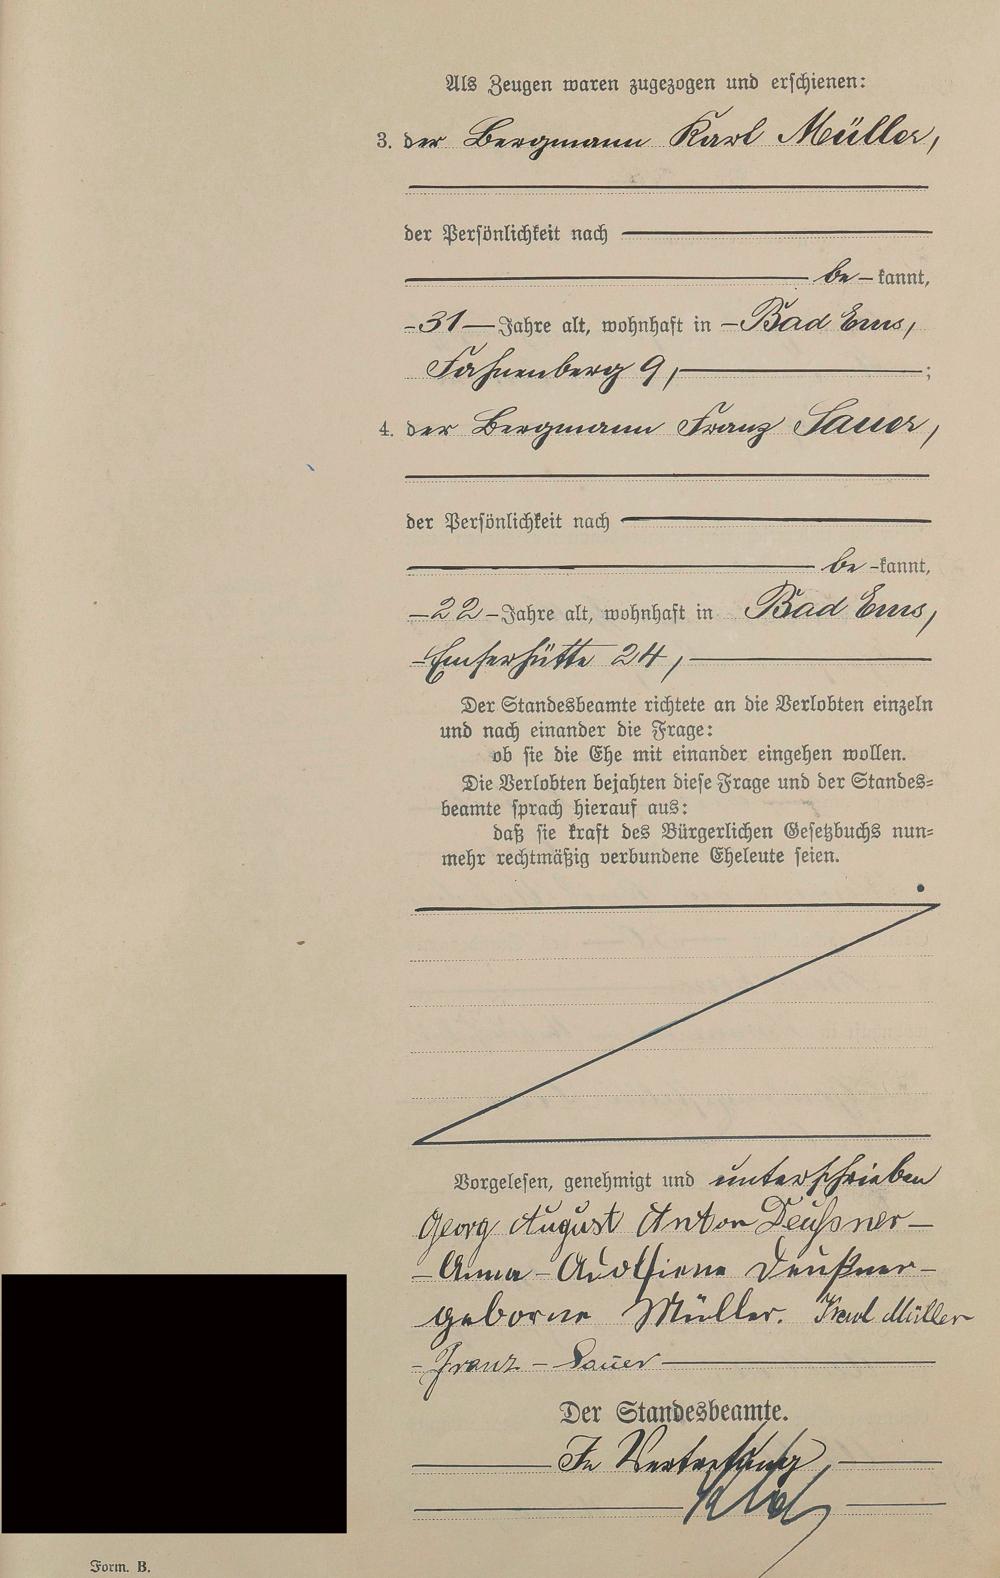 Als Zeugen waren zugezogen und erschienen:
3. der Bergmann Karl Müller,
der Persönlichkeit nach
be-kannt,
-31- Jahre alt, wohnhaft in - Bad Ems,
Fahnenberg 9, ;
4. der Bergmann Franz Sauer,
der Persönlichkeit nach
be-kannt,
-22- Jahre alt, wohnhaft in Bad Ems,
-Emserhütte 24,
Der Standesbeamte richtete an die Verlobten einzeln
und nach einander die Frage:
ob sie die Ehe mit einander eingehen wollen.
Die Verlobten bejahten diese Frage und der Standes=
beamte sprach hierauf aus:
daß sie kraft des Bürgerlichen Gesetzbuchs nun=
mehr rechtmäßig verbundene Eheleute seien.
Vorgelesen, genehmigt und unterschrieben
Georg August Anton Deußner-
-Anna-Adolfiene Deußner-
geborne Müller. Karl Müller
-Franz-Sauer
Der Standesbeamte.
In Vertretung,
Form. B.